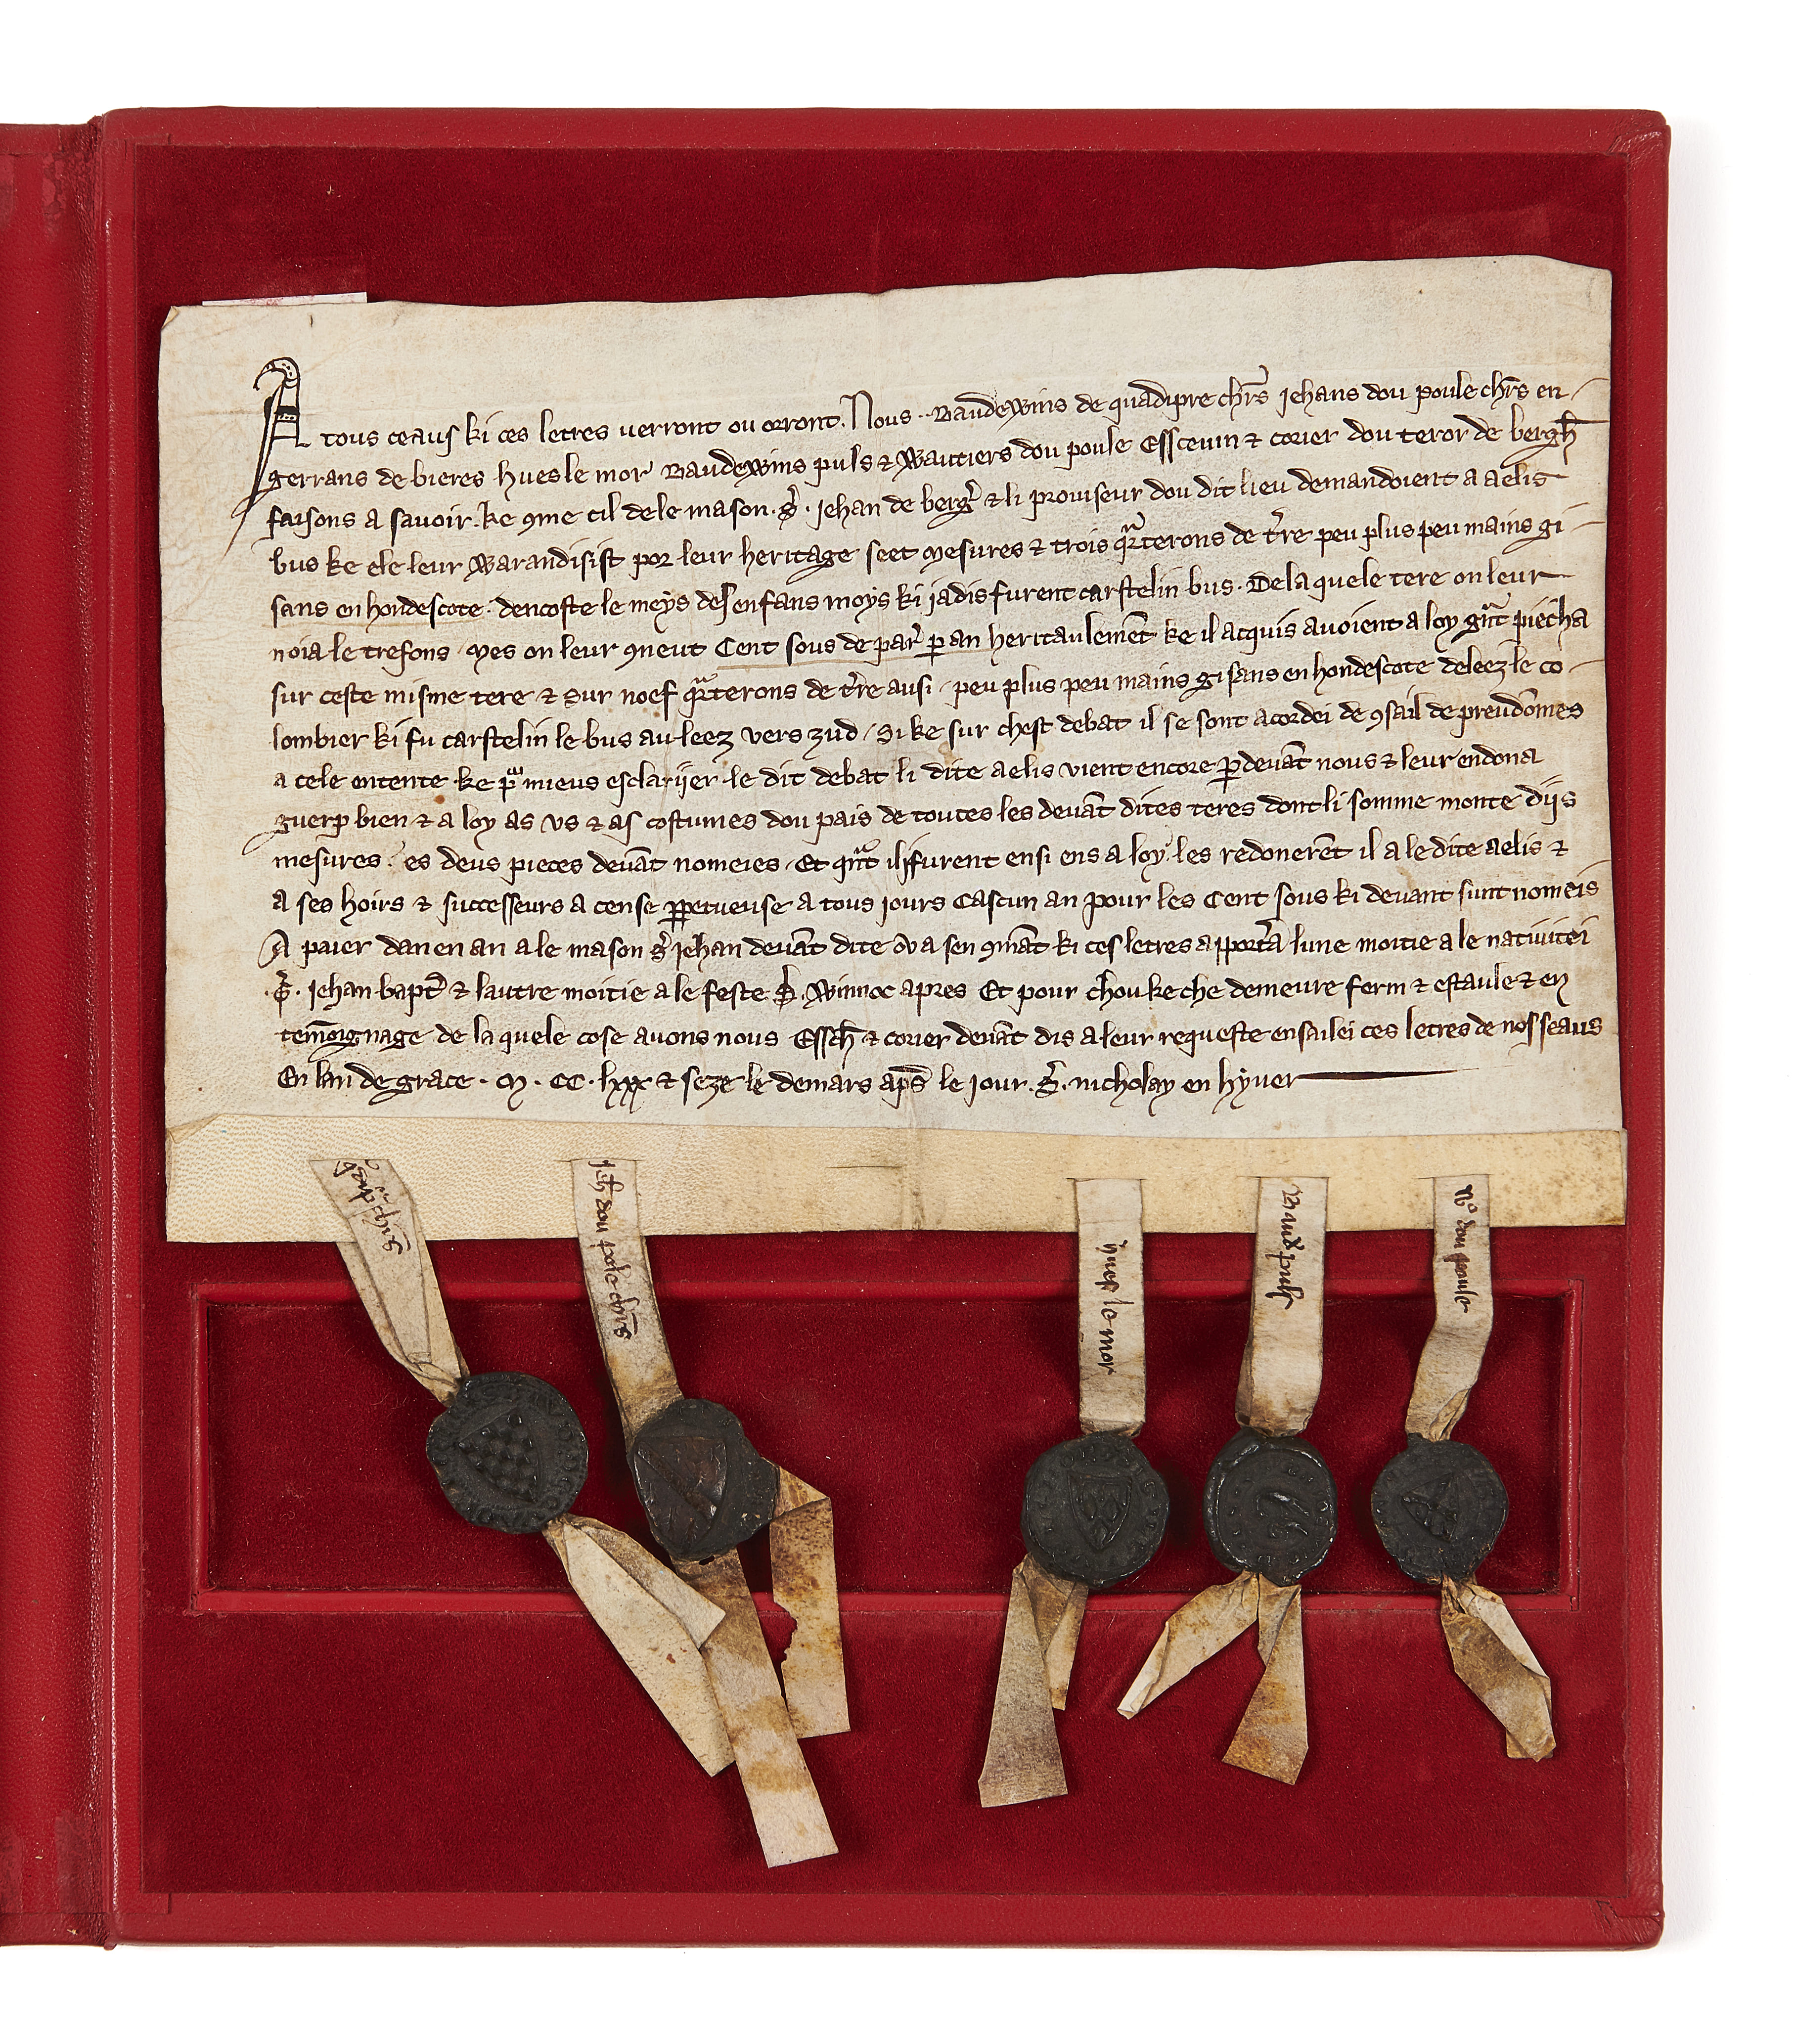 A tous ceaus ki ces letres verront ou orront. Nous .. Baudewins de quadipre chr̄s Jehans dou poule chr̄s en-
gerrans de bieres hues le mor Baudewins puls & Wautiers dou poule Esscevin & corier dou teror de bergh̄
faisons a savoir. ke ꝯme cil de le mason. s̄. Jehan de berḡ & li proviseur dou dit lieu demandoient a aelis
bus ke ele leur warandisist por leur heritage seet mesures & trois qͣrterons de t̄re peu plus peu mains gi-
sans en hondescote. dencoste le meys des enfans moys ki jadis furent carstelin bus. De la quele tere on leur
noia le trefons. Mes on leur ꝯneut Cent sous de par̄ ꝑ an heritaulemēt ke il acquis avoient a loy gͣnt piecha
sur ceste misme tere & sur noef qͣrterons de t̄re ausi peu plus peu mains gisans en hondescote deleez le co-
lombier ki fu carstelin le bus au leez vers zud / Si ke sur chest debat il se sont acordei de ꝯsail de preudōmes
a cele entente ke pͫ mieus esclariier le dit debat li dite aelis vient encore ꝑdevāt nous & leur en dona
guerp bien & a loy as us & as costumes dou pais de toutes les devāt dites teres dont li somme monte diis
mesures. es deus pieces devāt nomeies. Et qͣnt il furent ensi ens a loy. les redonerēt il a le dite aelis &
a ses hoirs & successeurs a cense ꝑpetueuse a tous jours Cascun an pour les Cent sous ki devant sunt nomeis
A paier dan en an a le mason s̄ Jehan devāt dite v̄ a sen ꝯmāt ki ces letres apport̄a lune moitie a le nativitei
.s̄. Jehan bapt̄ & lautre moitie a le feste S̄. Winnoc apres Et pour chou ke che demeure ferm & estaule & en
temoīgnage de la quele cose avons nous Essch̄ & corier devāt dis a leur requeste ensailei ces letres de nos seaus
En lan de grace. M. CC. lxxx & seze le demars ap̄s le jour. s̄. nicholay en hyver
Jeh̄ dou pole chr̄s
hues le mor
Baud̄ puls
W̊ dou poule